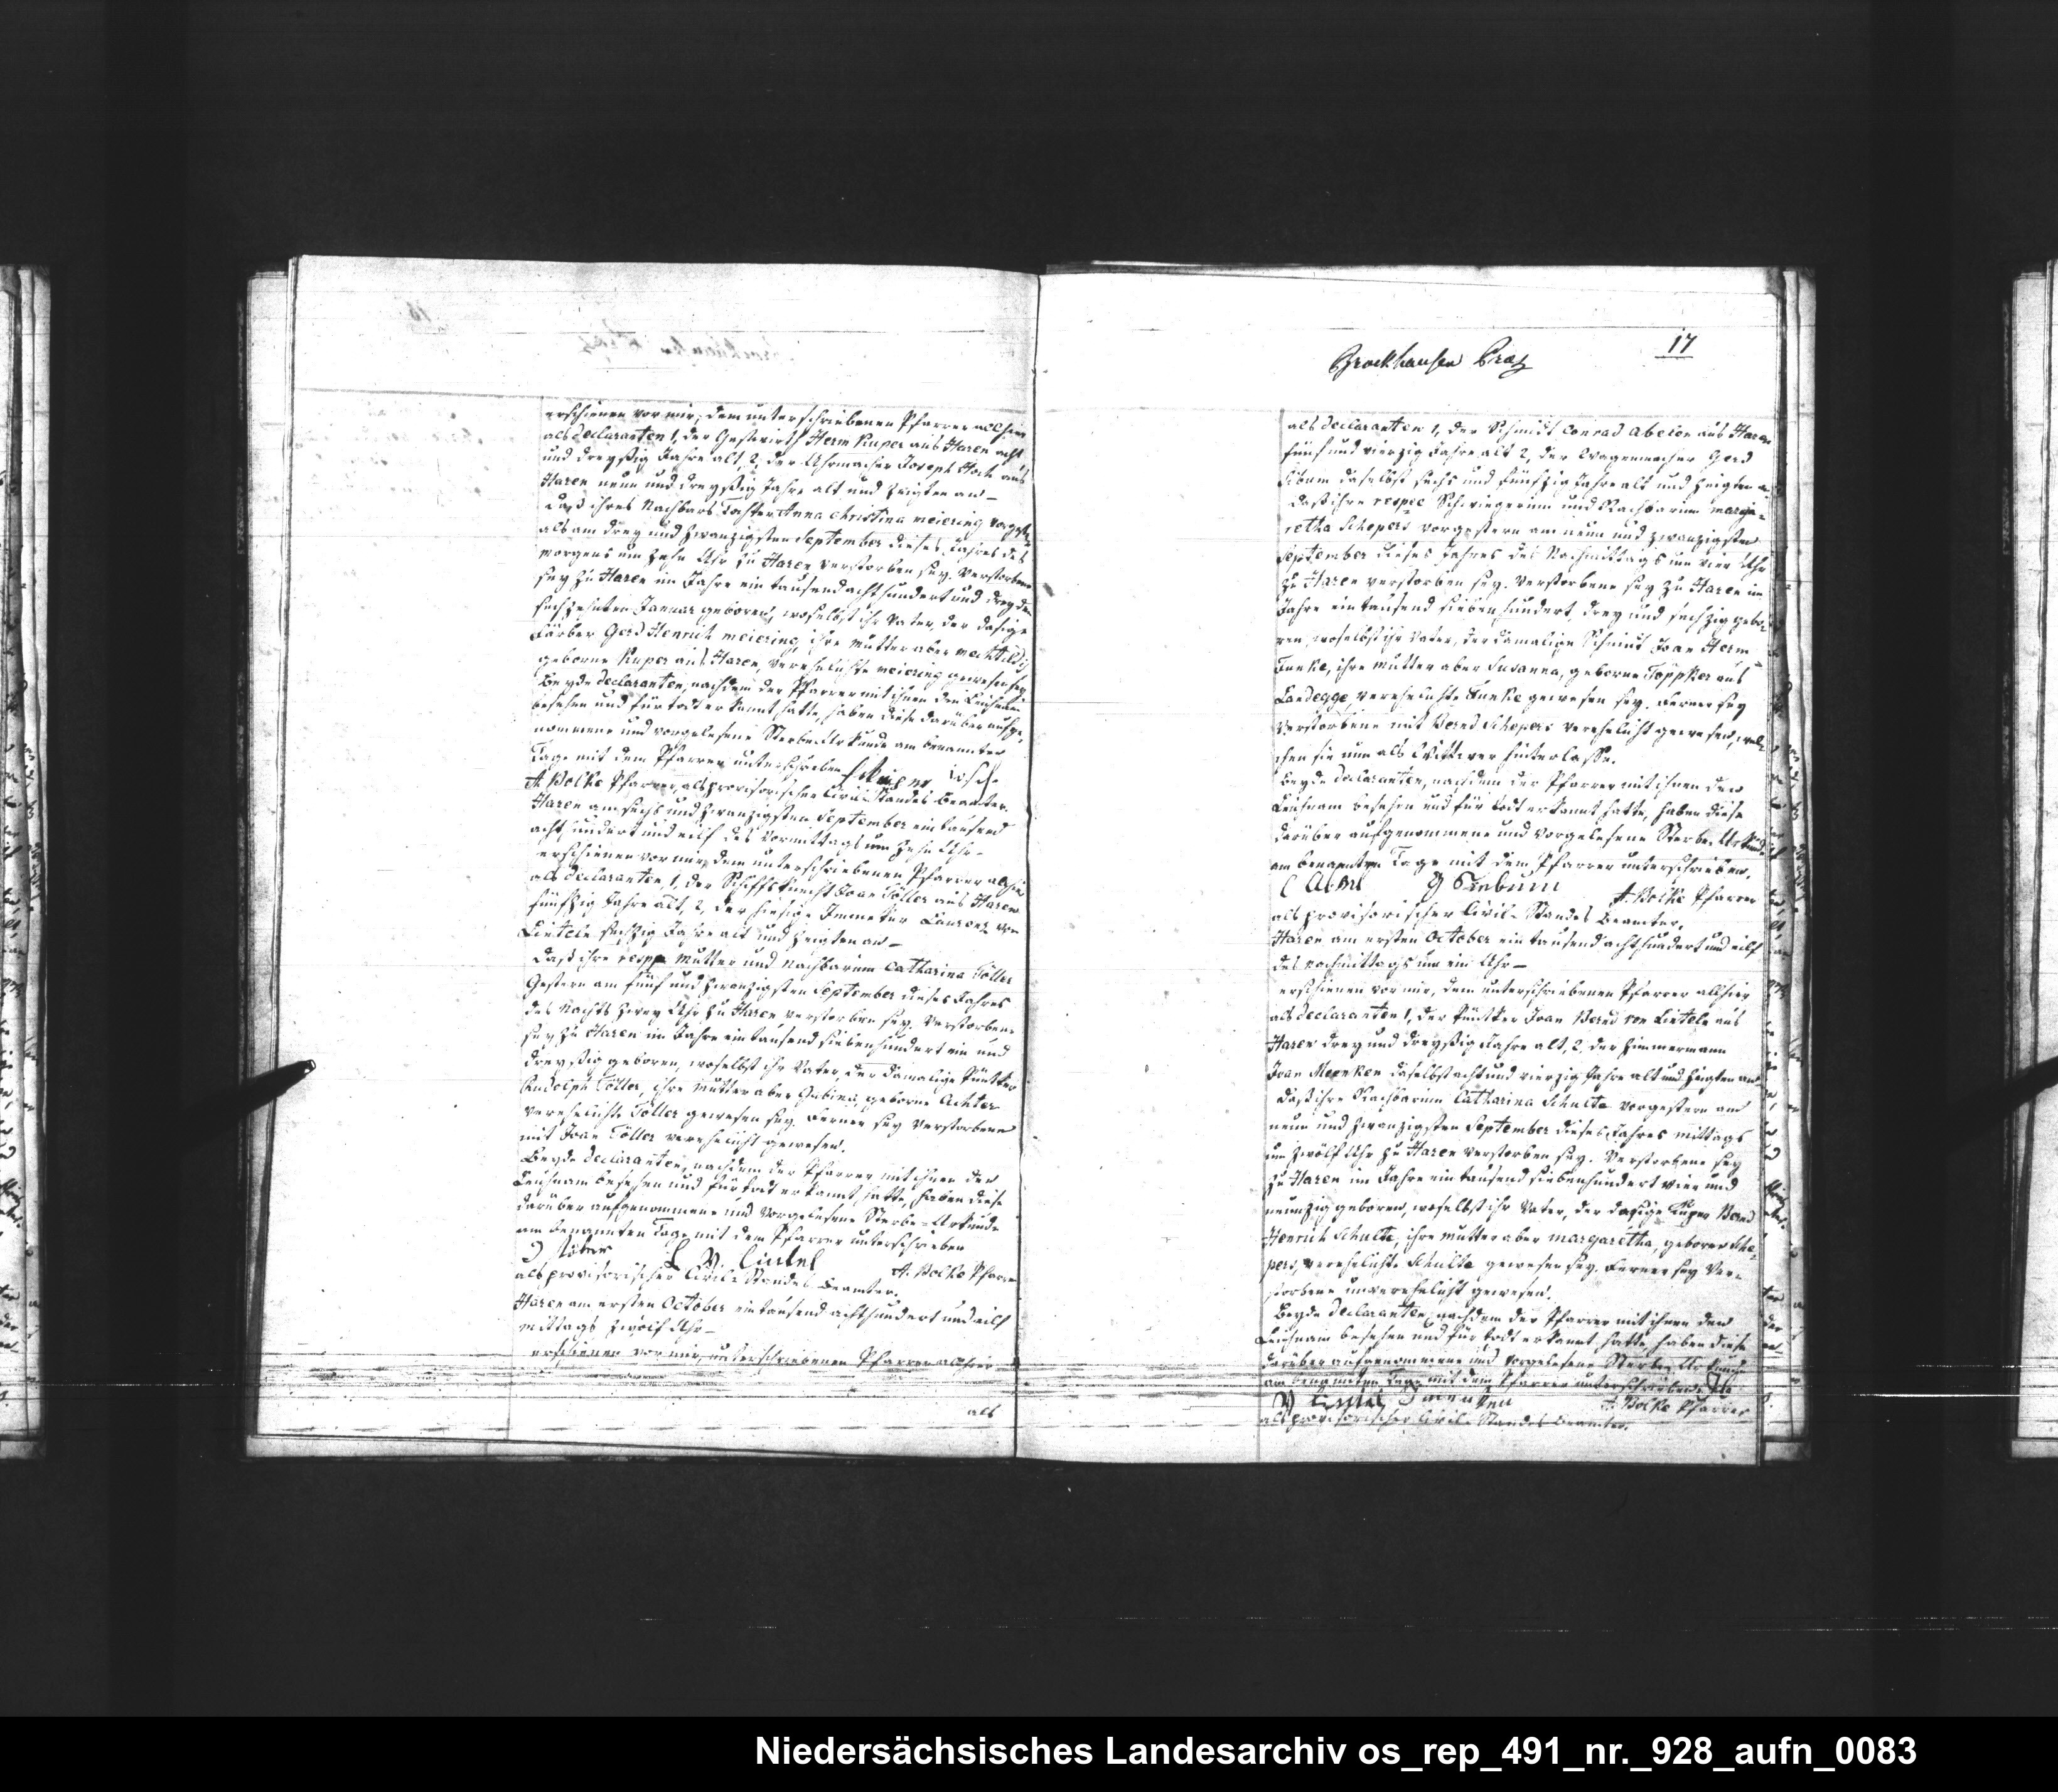 erschienen vor mir, dem unterschriebenen Pfarrer allhier
als declaranten 1, der Gastwirth Herm Kuper aus Haren acht
und dreyßig Jahre alt, 2, der Uhrmacher Joseph Hoch aus
Haren neun und dreyßig Jahre alt und zeigten an –
daß ihres Nachbars Tochter Anna Christina meiering vorgestern
als am drey und zwanzigsten September dieses Jahres des
morgens um zehn Uhr zu Haren verstorben sey. Verstorbene
sey zu Haren im Jahre ein tausend acht hundert und drey den
sechzehnten Januar geboren, woselbst ihr Vater, der dasige
Färber Gerd Henrich meiering, ihre Mutter aber mechtildis
geborne Kuper aus Haren, verehelichte meiering gewesen sey.
Beyde declaranten, nachdem der Pfarrer mit ihnen den Leichnam
besehen und für todt erkannt hatte, haben diese darüber aufge,
nommene und vorgelesene Sterbe Urkunde am benannten
Tage mit dem Pfarrer unterschrieben
A. Bolke Pfarrer, als provisorischer Civil-Standes Beamter.
Haren am sechs und zwanzigsten September ein tausend
acht hundert und eilf des Vormittags um zehn Uhr –
erschienen vor mir, dem unterschriebenen Pfarrer allhier
als declaranten, 1, der Schiffsknecht Joan Töller aus Haren
fünfzig Jahre alt, 2, der hiesige Laurenz von
Linteln sechzig Jahre alt und zeigten an –
daß ihre resp. Mutter und Nachbarinn Catharina Töller
Gestern am fünf und zwanzigsten September dieses Jahres
des Nachts zwey Uhr zu Haren verstorben sey. Verstorbene
sey zu Haren im Jahre ein tausend siebenhundert ein und
dreyßig geboren, woselbst ihr Vater, der damalige Püntker
Rudolph Töller, ihre Mutter aber geborne Achter
verehelichte Töller gewesen sey. Ferner sey Verstorbene
mit Joan Töller verehelicht gewesen.
Beyde declaranten, nachdem der Pfarrer mit ihnen den
Leichnam besehen und für todt erkannt hatte, haben diese
darüber aufgenommene und vorgelesene Sterbe-Urkunde
am benannten Tage mit dem Pfarrer unterschrieben
L V Lintel A. Bolke Pfarrer
als provisorischer Civil-Standes Beamter.
Haren am ersten October ein tausend acht hundert und eilf
mittags zwölf Uhr –
erschienen vor mir, unterschriebenen Pfarrer allhier
als
17
Brockhausen
als declaranten 1, der Schmidt Conrad Abelen aus Haren
fünf und vierzig Jahre alt 2, der Wagenmacher Gerd
Sibum daselbst sechs und fünfzig Jahre alt und zeigten an
daß ihre respec Schwiegerinn und Nachbarinn marga-
retha Schepers vorgestern am neun und zwanzigsten
September dieses Jahres des Nachmittags um vier Uhr
zu Haren verstorben sey. Verstorbene sey zu Haren im
Jahre ein tausend siebenhundert drey und sechzig gebo-
ren, woselbst ihr Vater, der damalige Schmidt Joan Herm
Funke, ihre Mutter aber Susanna, geborne Töppker aus
Landegge, verehelichte Funke gewesen sey. Ferner sey
Verstorbene mit Bernd Schepers verehelicht gewesen, wel-
chen sie nun als Wittwer hinterlasse.
Beyde declaranten, nachdem der Pfarrer mit ihnen den
Leichnam besehen und für todt erkannt hatte, haben diese
darüber aufgenommene und vorgelesene Sterbe-Urkunde
am benannten Tage mit dem Pfarrer unterschrieben.
A. Bolke Pfarrer
als provisorischer Civil-Standes Beamter.
Haren am ersten October ein tausend acht hundert und eilf
des nachmittags um ein Uhr –
erschienen vor mir, dem unterschriebenen Pfarrer allhier
als declaranten 1, der Püntker Joan Bernd von Linteln aus
Haren drey und dreyßig Jahre alt, 2, der Zimmermann
Joan Menken daselbst acht und vierzig Jahre alt und zeigten an
daß ihre Nachbarinn Catharina Schulte vorgestern am
neun und zwanzigsten September dieses Jahres mittags
um zwölf Uhr zu Haren verstorben sey. Verstorbene sey
zu Haren im Jahre ein tausend siebenhundert vier und
neunzig geboren, woselbst ihr Vater, der dasige Küper Bernd
Henrich Schulte, ihre Mutter aber margaretha, geborne Sche-
pers, verehelichte Schulte gewesen sey. Ferner sey Ver-
storbene unverehelicht gewesen.
Beyde declaranten, nachdem der Pfarrer mit ihnen den
Leichnam besehen und für todt erkannt hatte, haben diese
darüber aufgenommene und vorgelesene Sterbe-Urkunde
am benannten Tage mit dem Pfarrer unterschrieben.
V Lintel J menken A. Bolke Pfarrer
als provisorischer Civil-Standes Beamter.
Niedersächsisches Landesarchiv os_rep_491_nr._928_aufn_0083